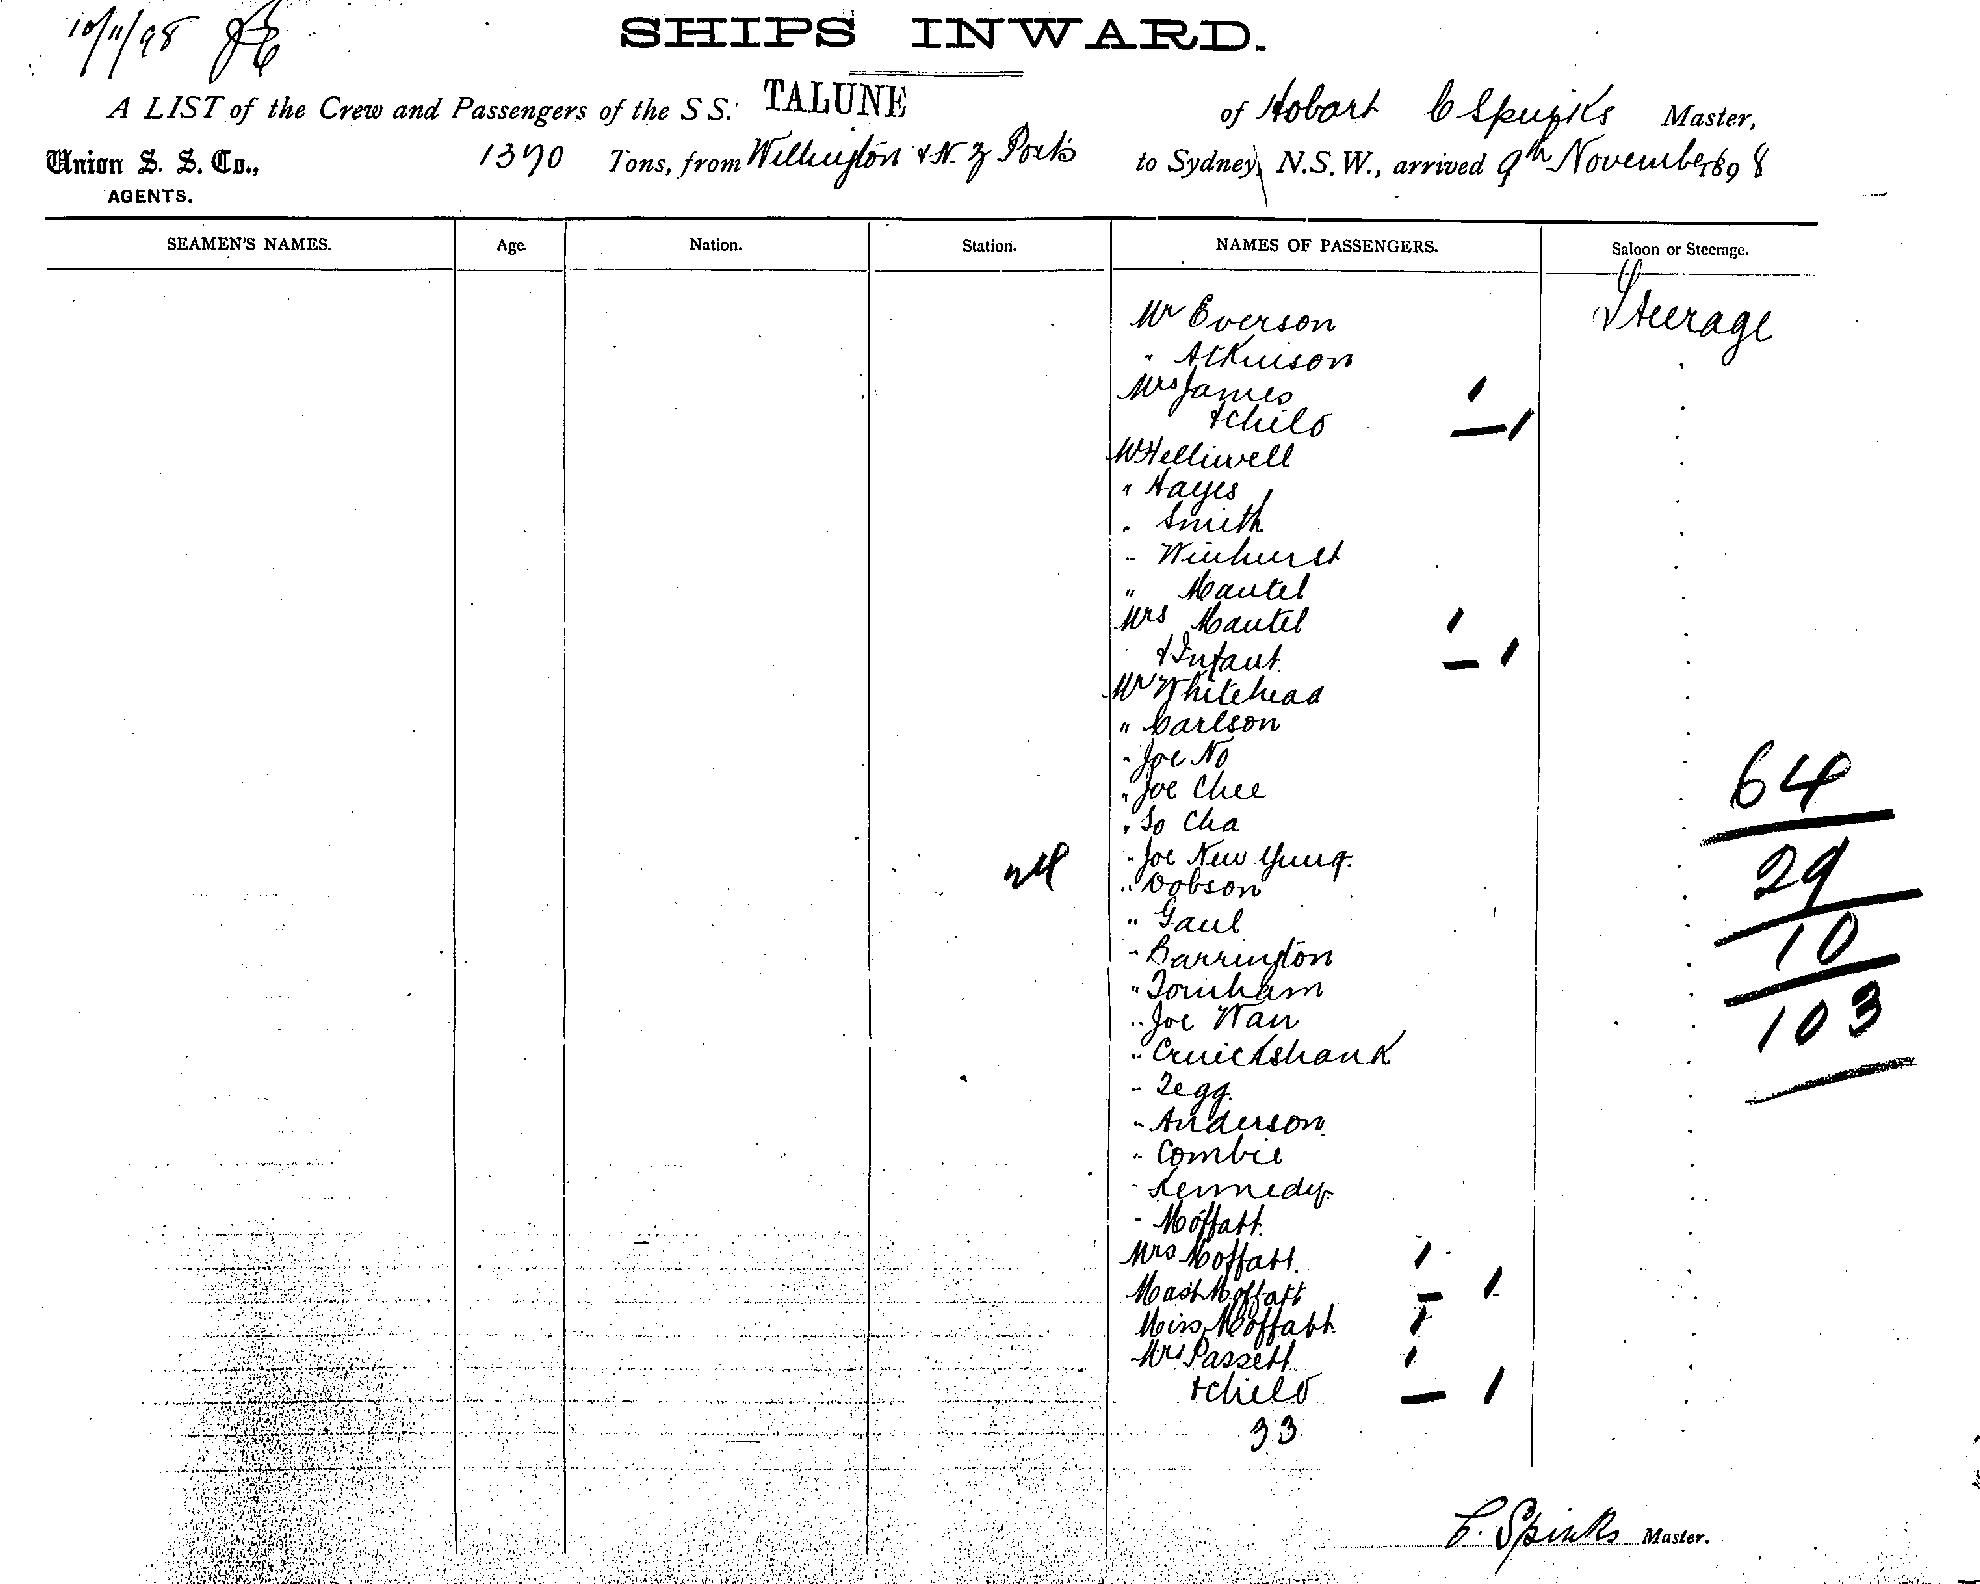 10/11/98
SHIPS INWARD.
A LIST of the Crew and Passengers of the S S. TALUNE of Hobart C Spinks Master,
Union S. S. Co., 1370 Tons, from Wellington & N. Z Ports to Sydney, N.S.W., arrived 9th November 1898
AGENTS.
SEAMEN'S NAMES. Age. Nation. Station. NAMES OF PASSENGERS. Saloon or Steerage.
Mr Everson Steerage
" Atkinson
Mrs James
& child
Mr Helliwell
" Hayes
" Smith
" Winhurst
" Mantel
Mrs Mantel
& Infant
Mr Whitehead
" Carlson
" Joe No
" Joe Chee
" So Cha
" Joe New Yung
" Dobson
" Gaul
" Barrington
" Tornham
" Joe Wan
" Cruickshank
" Tegg
" Anderson
" Combie
" Kennedy
" Moffatt
Mrs Moffatt
Mast Moffatt
Miss Moffatt
Mrs Passett
& child
33
64
29
10
103
C. Spinks Master.